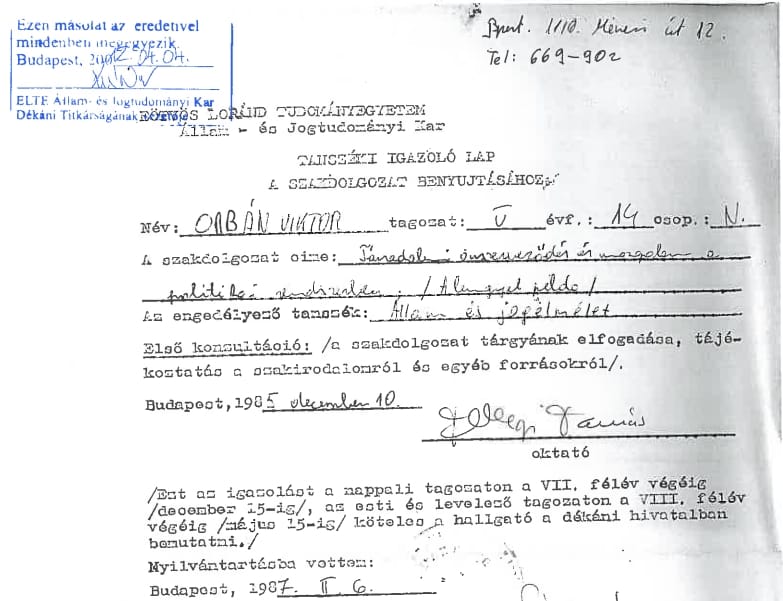 Ezen másolat az eredetivel
mindenben megegyezik.
Budapest, 2012.04.04.
ELTE Állam- és Jogtudományi Kar
Dékáni Titkárságának
Bpest. 1110. Ménesi út 12.
Tel: 669-902
EÖTVÖS LORÁND TUDOMÁNYEGYETEM
Állam - és Jogtudományi Kar
TANSZÉKI IGAZOLÓ LAP
A SZAKDOLGOZAT BENYUJTÁSÁHOZ.
Név: ORBÁN VIKTOR tagozat: V évf.: 14 csop.: N.
A szakdolgozat címe: Társadalmi önszerveződés és mozgalom a
politikai rendszerben. /A lengyel példa/
Az engedélyező tanszék: Állam és jogelmélet
Első konsultáció: /a szakdolgozat tárgyának elfogadása, tájé-
koztatás a szakirodalomról és egyéb forrásokról/.
Budapest,1985 december 10.
Fellegi Tamás
oktató
/Ezt az igazolást a nappali tagozaton a VII. félév végéig
/december 15-ig/, az esti és levelező tagozaton a VIII. félév
végéig /május 15-ig/ köteles a hallgató a dékáni hivatalban
bemutatni./
Nyilvántartásba vettem:
Budapest, 1987. II. 6.